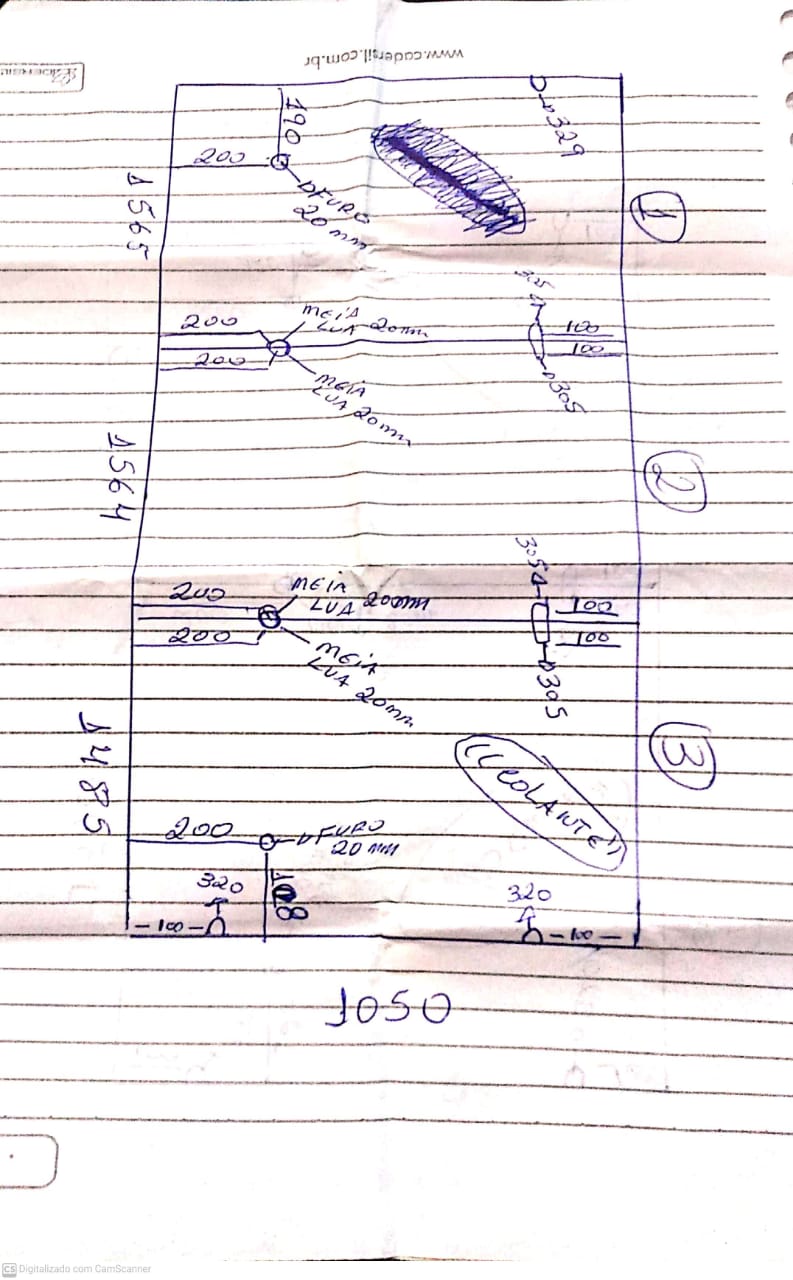 www.cadersil.com.br
190
200
FURO
20 mm
329
1
1565
200
200
MEIA
LUA 20mm
MEIA
LUA 20mm
305
305
100
100
1564
2
200
200
MEIA
LUA 20mm
MEIA
LUA 20mm
305
305
100
100
3
1485
"COLANTE"
200
FURO
20 mm
320
100
320
100
1050
CS Digitalizado com CamScanner